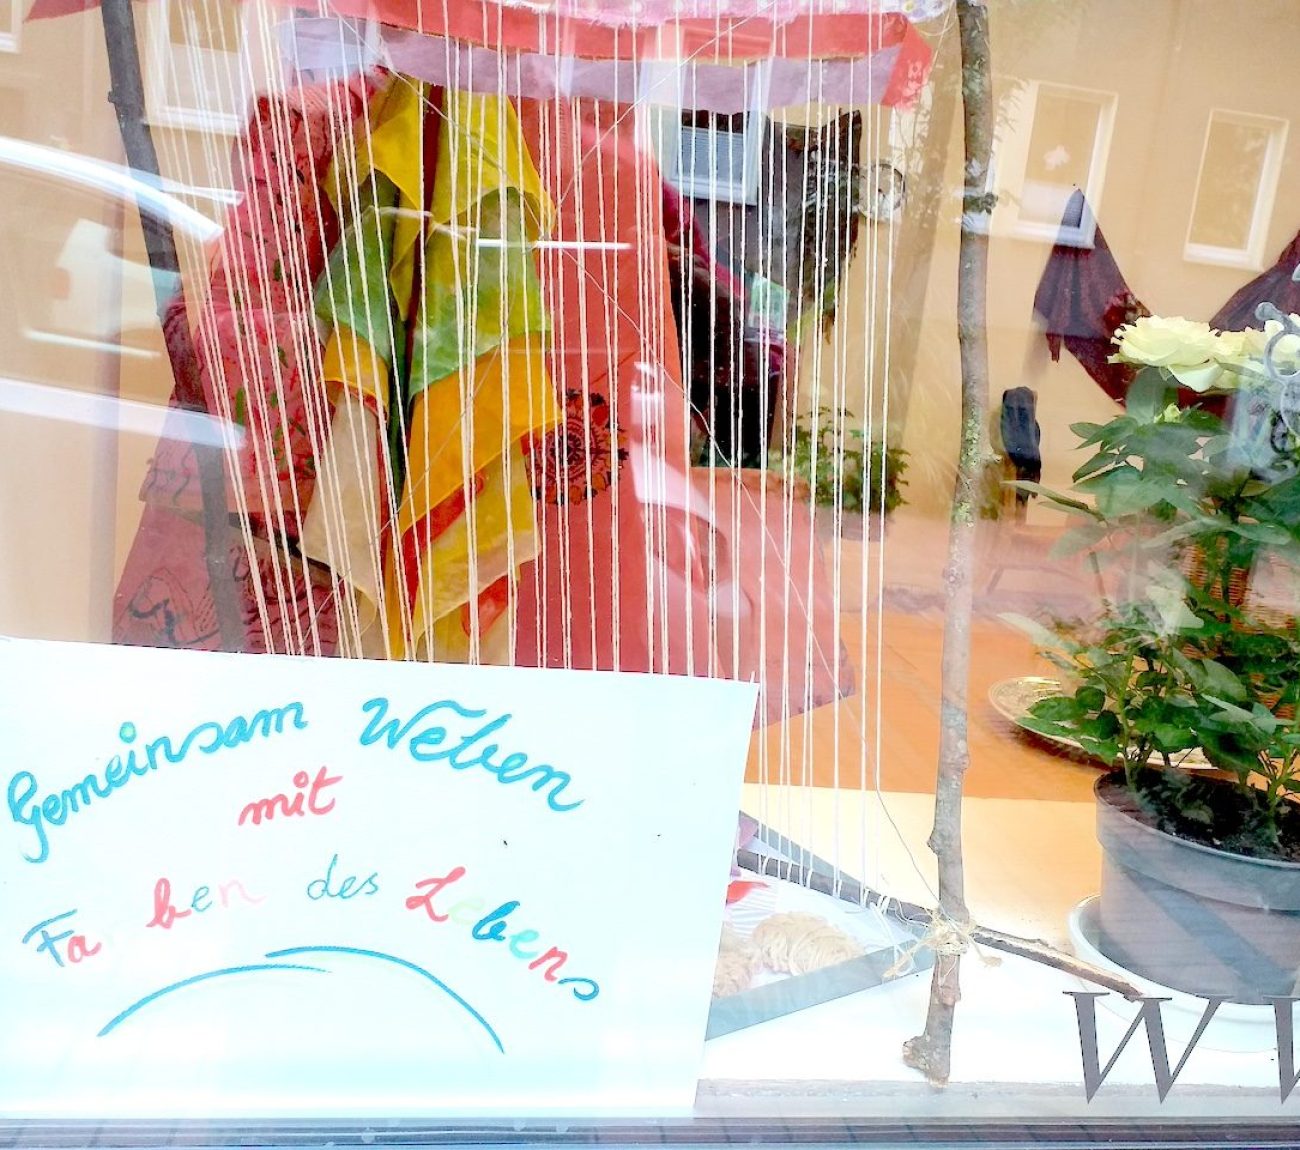 Gemeinsam Weben
mit
Farben des Lebens
WW